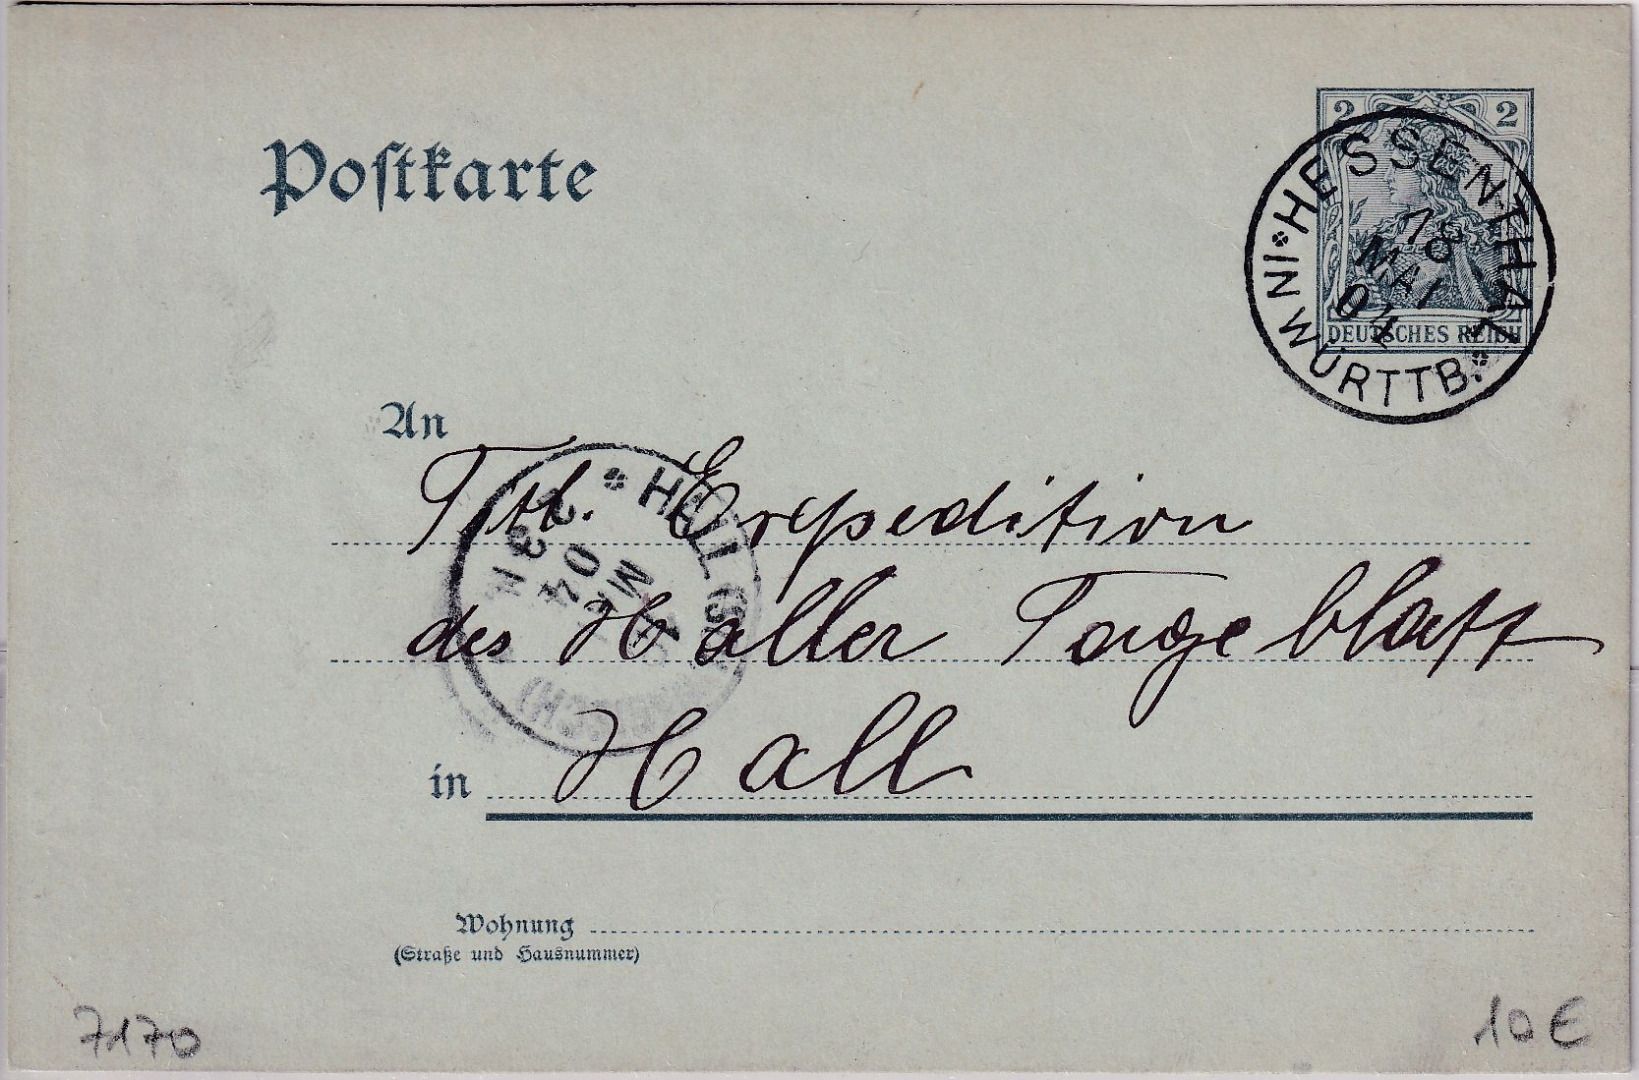 Postkarte
2 2
DEUTSCHES REICH
HESSENTHAL
18
MAI
04
IN WÜRTTB.
An
Titl. Expedition
des Haller Tageblatt
in Hall
HALL
MAI
04
Wohnung
(Straße und Hausnummer)
7170
10 €